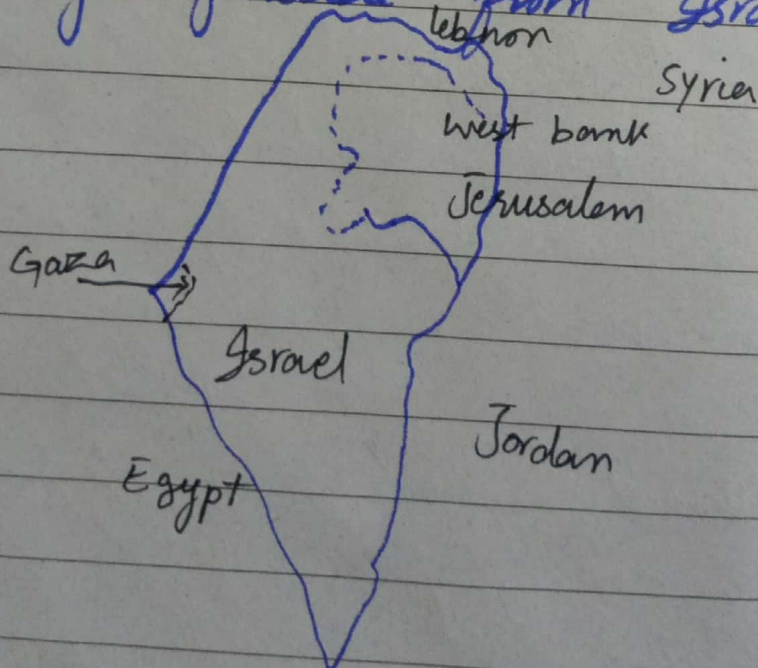 from
Lebnon
Syria
West bank
Jerusalem
Gaza
Israel
Jordan
Egypt